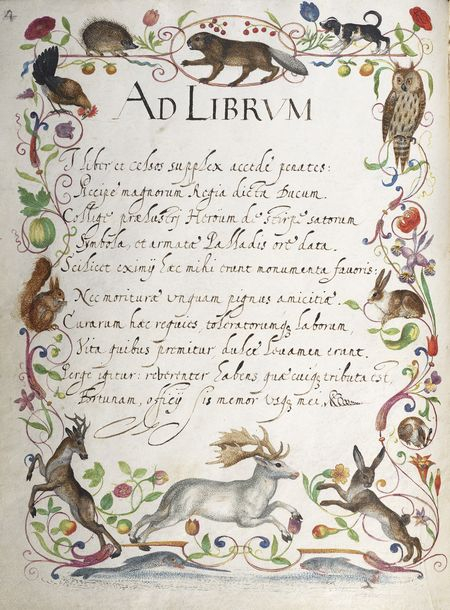 4
AD LIBRVM
I liber et celsos supplex accede penates:
Accipe magnorum Regia dicta Ducum.
Collige prælustrj Heroum de stirpe satorum
Symbola, et armatæ Palladis ore data.
Scilicet eximij hæc mihi erunt monumenta fauoris:
Nec morituræ vnquam pignus amicitiæ.
Curarum hæc requies, toleratorumq3 laborum,
Vita quibus premitur, dulce leuamen erunt.
Perge igitur: reuerenter habens quæ cuiq3 tributa est,
Fortunam, officij sis memor vsq3 mei.